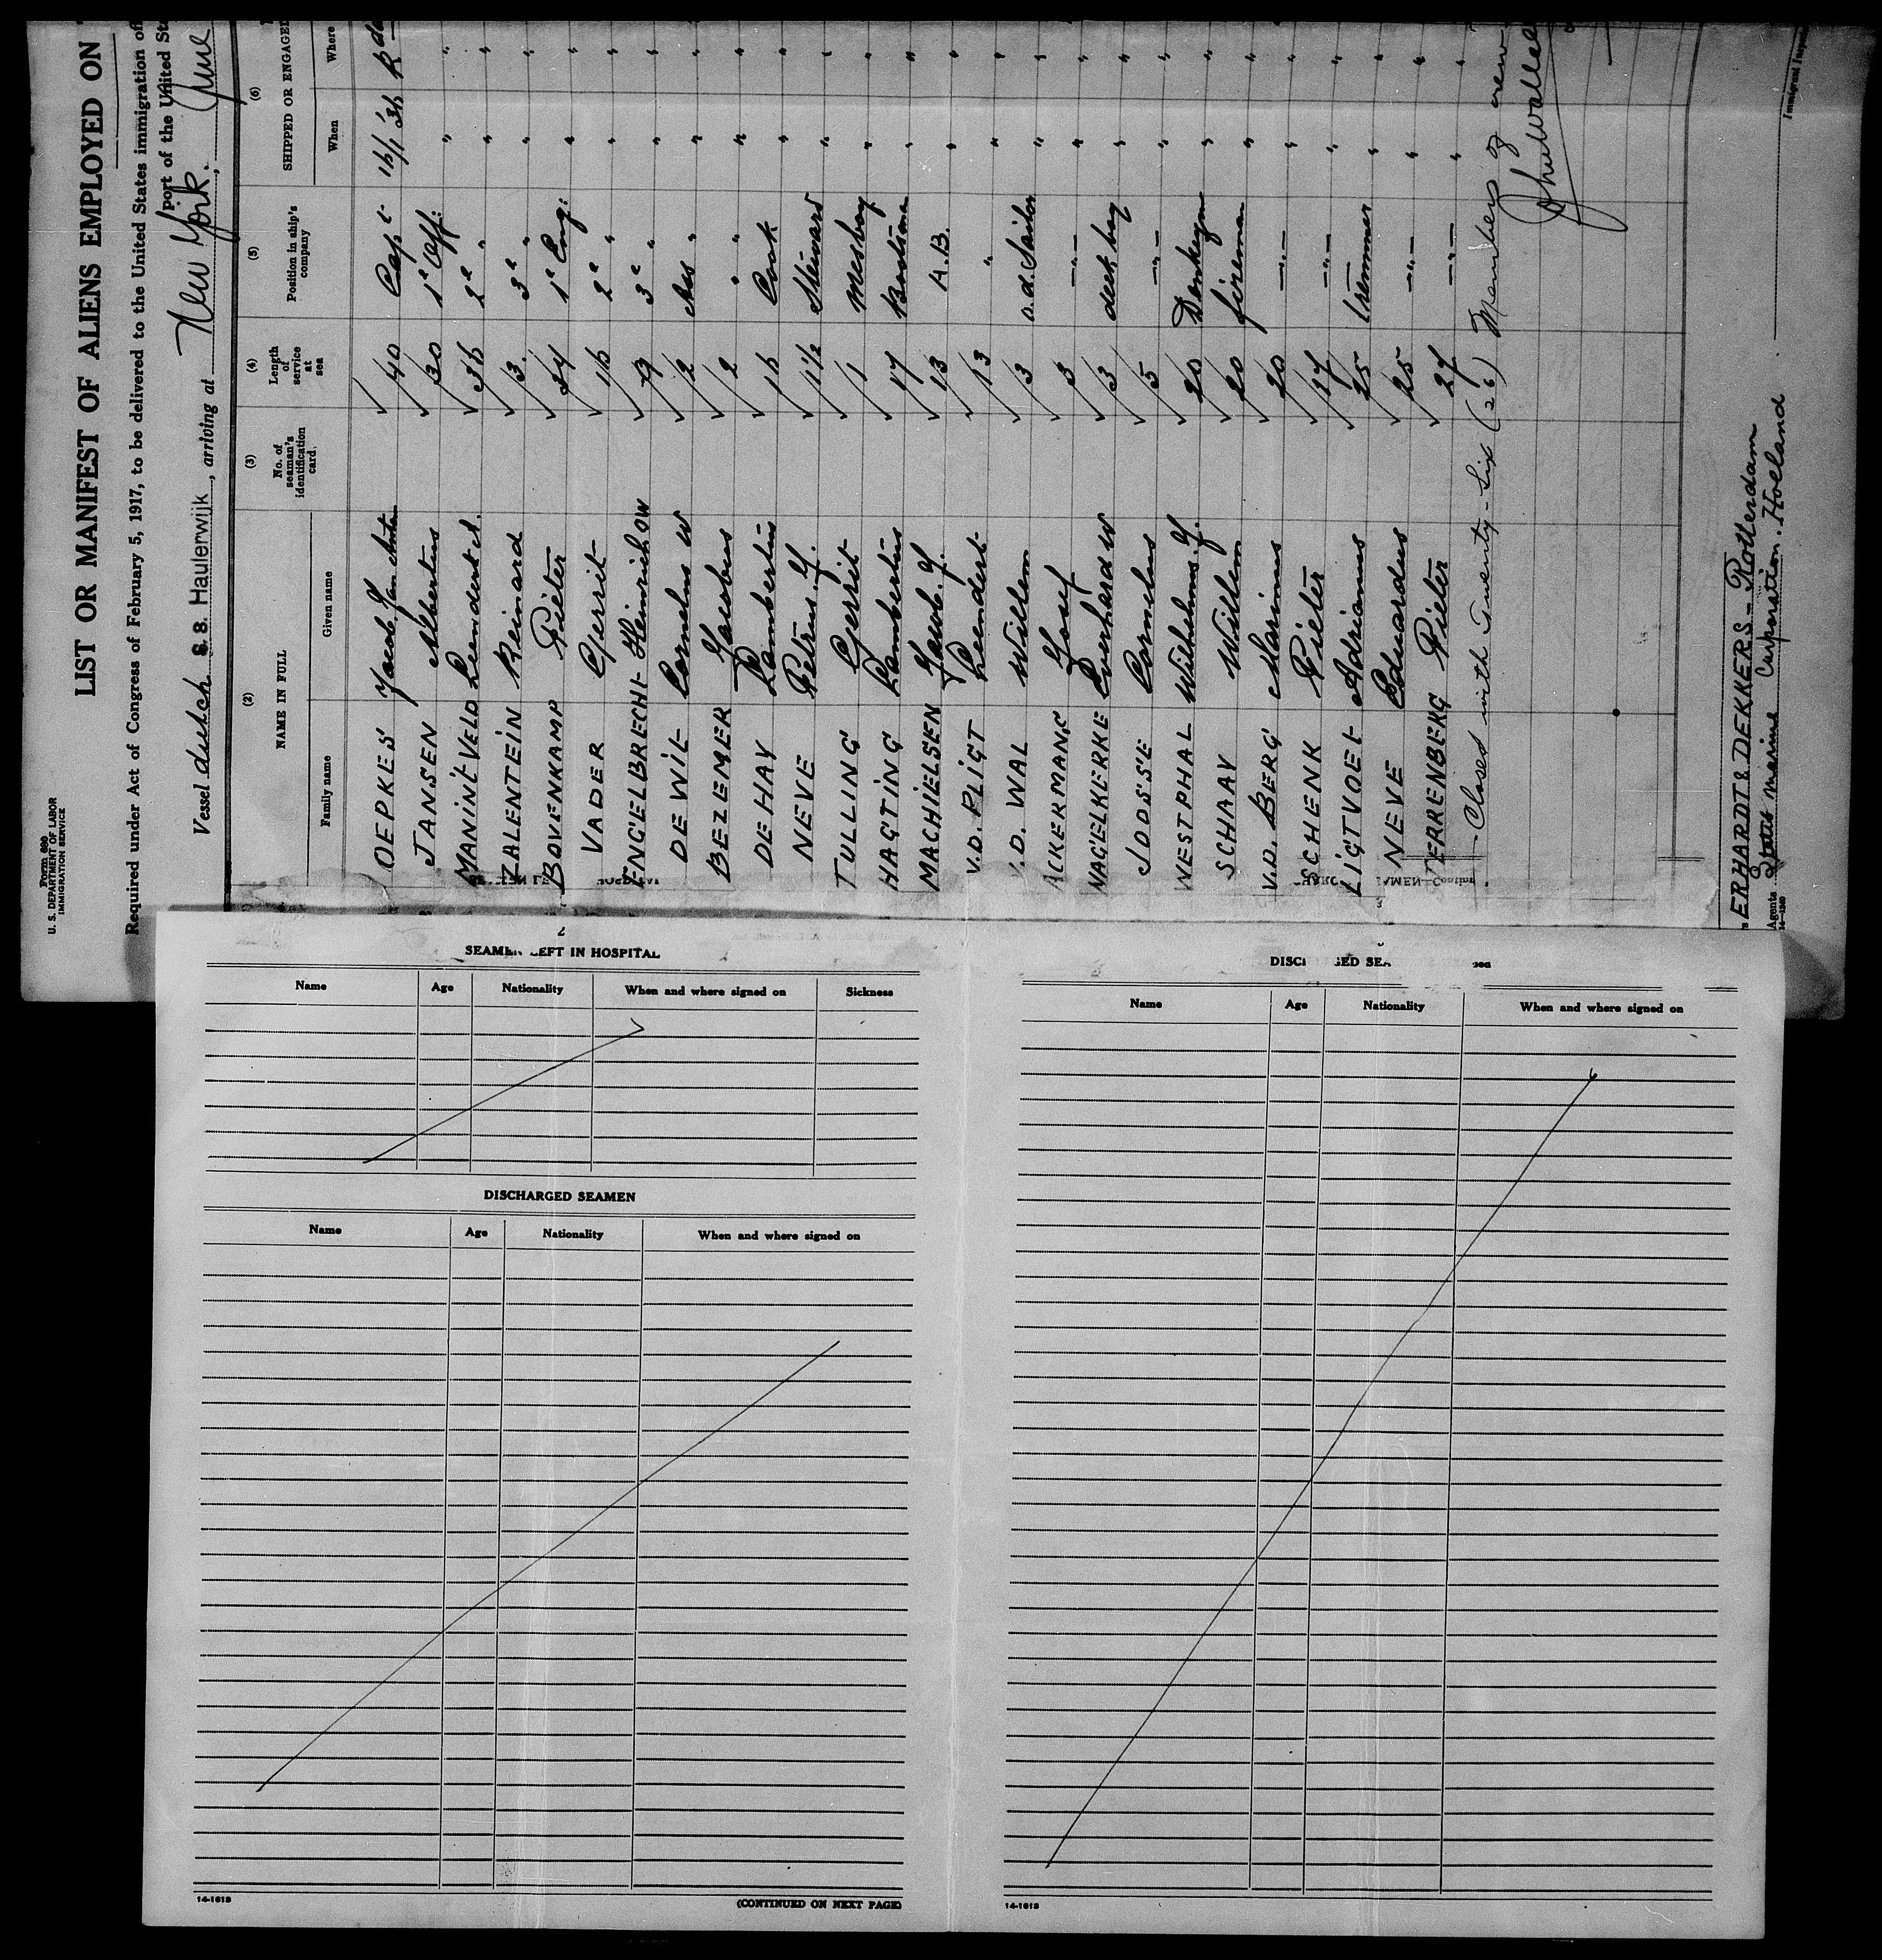 Form 680
U. S. DEPARTMENT OF LABOR
IMMIGRATION SERVICE
LIST OR MANIFEST OF ALIENS EMPLOYED ON
Required under Act of Congress of February 5, 1917, to be delivered to the United States immigration of
port of the United St
Vessel dutch S.S. Haulerwijk, arriving at New York, June
(2) (3) (4) (5) (6)
NAME IN FULL No. of seaman's identification card. Length of service at sea Position in ship's company SHIPPED OR ENGAGED
Family name Given name When Where
OEPKES Jacob Jan 40 Capt
JANSEN Albertus 30 1e Off:
MANINTVELD Leendert A. 2e "
ZALENTEIN Reinard 3 3e "
BOVENKAMP Pieter 1e Eng:
VADER Gerrit 2e "
ENGELBRECHT Heinrich OW 9 3e "
DE WIT Cornelus W 2 Ass "
BEZEMER Jacobus 2 " "
DE HAY Lambertus Cook
NEVE Petrus. J. 1 1/2 Steward
TULLING Gerrit 1 Mesboy
HAGTING Lambertus 17 Bootsman
MACHIELSEN Jacob. J. 13 A.B.
V.D. PLIGT Leendert 13 "
V.D. WAL Willem 3 o.d. Sailor
ACKERMANS Josef 3 —"—
NAGELKERKE Everhard W 3 deck boy
JOOSSE Cornelus 5 —"—
WESTPHAL Wilhelmus. J. 20 Donkeyman
SCHAAY Willem 20 fireman
V.D. BERG Marinus 20 —"—
SCHENK Pieter 17 —"—
LIGTVOET Adrianus 25 tremmer
NEVE Eduardus 25 —"—
TERRENBERG Pieter 27 —"—
Closed with Twenty-Six (26) Members of crew
ERHARDT & DEKKERS - Rotterdam
Agents States marine Corporation. Holland
14-1240
Immigrant Inspe
SEAMEN LEFT IN HOSPITAL
Name Age Nationality When and where signed on Sickness
DISCHARGED SEAMEN
Name Age Nationality When and where signed on
14-1613
(CONTINUED ON NEXT PAGE)
DISCHARGED SEA
Name Age Nationality When and where signed on
14-1613